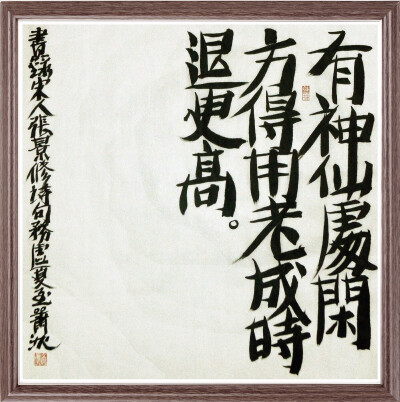 有神仙處閒
方得用老成時
退更高。
書錄宋人張景修詩句務虛夏至蕭沈